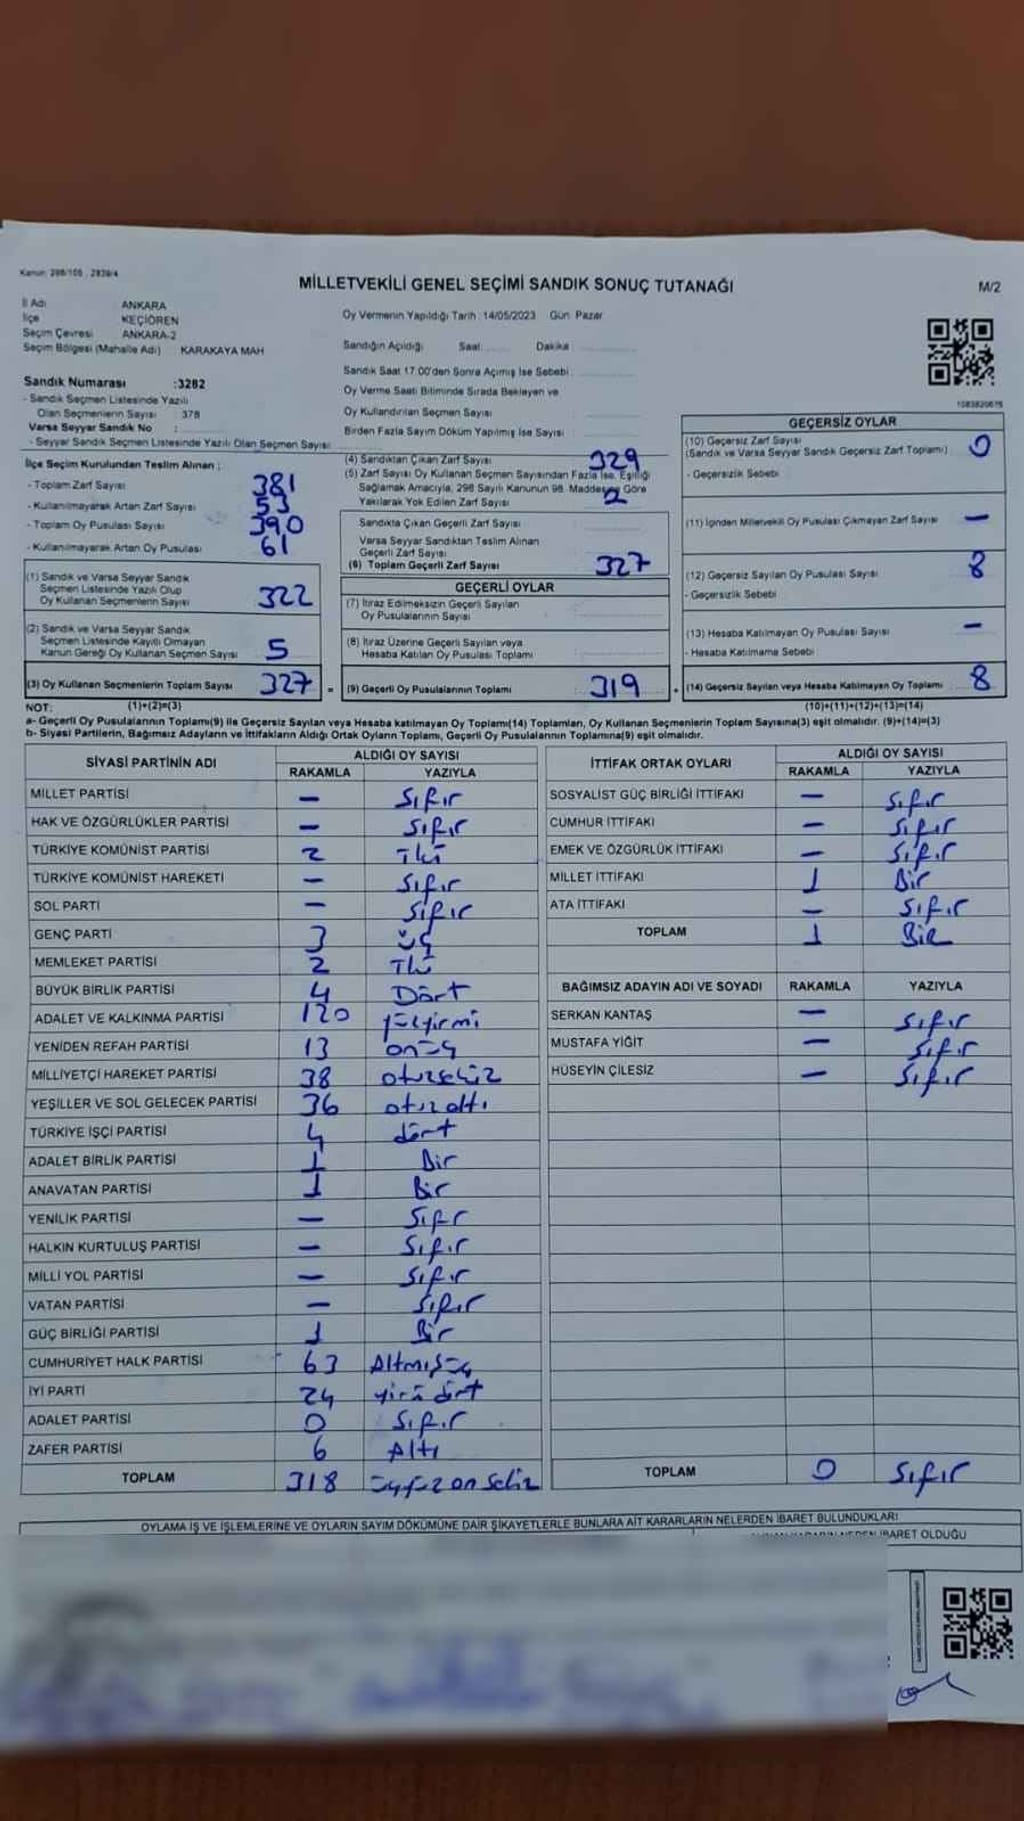 Kanun: 298/105 , 2839/4
MİLLETVEKİLİ GENEL SEÇİMİ SANDIK SONUÇ TUTANAĞI
M/2
İl Adı ANKARA
İlçe KEÇİÖREN
Seçim Çevresi ANKARA-2
Seçim Bölgesi (Mahalle Adı) KARAKAYA MAH
Sandık Numarası :3282
- Sandık Seçmen Listesinde Yazılı
Olan Seçmenlerin Sayısı : 378
Varsa Seyyar Sandık No :
- Seyyar Sandık Seçmen Listesinde Yazılı Olan Seçmen Sayısı
Oy Vermenin Yapıldığı Tarih :14/05/2023 Gün: Pazar
Sandığın Açıldığı Saat: Dakika:
Sandık Saat 17:00'den Sonra Açımış İse Sebebi
Oy Verme Saati Bitiminde Sırada Bekleyen ve
Oy Kullandırılan Seçmen Sayısı
Birden Fazla Sayım Döküm Yapılmış İse Sayısı
İlçe Seçim Kurulundan Teslim Alınan :
- Toplam Zarf Sayısı 381
- Kullanılmayarak Artan Zarf Sayısı 53
- Toplam Oy Pusulası Sayısı 390
- Kullanılmayarak Artan Oy Pusulası 61
(1) Sandık ve Varsa Seyyar Sandık
Seçmen Listesinde Yazılı Olup
Oy Kullanan Seçmenlerin Sayısı 322
(2) Sandık ve Varsa Seyyar Sandık
Seçmen Listesinde Kayıtlı Olmayan
Kanun Gereği Oy Kullanan Seçmen Sayısı 5
(3) Oy Kullanan Seçmenlerin Toplam Sayısı 327 =
(4) Sandıktan Çıkan Zarf Sayısı 329
(5) Zarf Sayısı Oy Kullanan Seçmen Sayısından Fazla İse, Eşitliği
Sağlamak Amacıyla, 298 Sayılı Kanunun 98. Maddesine Göre
Yakılarak Yok Edilen Zarf Sayısı 2
Sandıkta Çıkan Geçerli Zarf Sayısı
Varsa Seyyar Sandıktan Teslim Alınan
Geçerli Zarf Sayısı
(6) Toplam Geçerli Zarf Sayısı 327
GEÇERLİ OYLAR
(7) İtiraz Edilmeksizin Geçerli Sayılan
Oy Pusulalarının Sayısı
(8) İtiraz Üzerine Geçerli Sayılan veya
Hesaba Katılan Oy Pusulası Toplamı
(9) Geçerli Oy Pusulalarının Toplamı 319 +
GEÇERSİZ OYLAR
(10) Geçersiz Zarf Sayısı
(Sandık ve Varsa Seyyar Sandık Geçersiz Zarf Toplamı) 0
- Geçersizlik Sebebi
(11) İçinden Milletvekili Oy Pusulası Çıkmayan Zarf Sayısı -
(12) Geçersiz Sayılan Oy Pusulası Sayısı 8
- Geçersizlik Sebebi
(13) Hesaba Katılmayan Oy Pusulası Sayısı -
- Hesaba Katılmama Sebebi
(14) Geçersiz Sayılan veya Hesaba Katılmayan Oy Toplamı 8
NOT: (1)+(2)=(3) (10)+(11)+(12)+(13)=(14)
a- Geçerli Oy Pusulalarının Toplamı(9) ile Geçersiz Sayılan veya Hesaba katılmayan Oy Toplamı(14) Toplamları, Oy Kullanan Seçmenlerin Toplam Sayısına(3) eşit olmalıdır. (9)+(14)=(3)
b- Siyasi Partilerin, Bağımsız Adayların ve İttifakların Aldığı Ortak Oyların Toplamı, Geçerli Oy Pusulalarının Toplamına(9) eşit olmalıdır.
SİYASİ PARTİNİN ADI ALDIĞI OY SAYISI
RAKAMLA YAZIYLA
MİLLET PARTİSİ - Sıfır
HAK VE ÖZGÜRLÜKLER PARTİSİ - Sıfır
TÜRKİYE KOMÜNİST PARTİSİ 2 İki
TÜRKİYE KOMÜNİST HAREKETİ - Sıfır
SOL PARTİ - Sıfır
GENÇ PARTİ 3 Üç
MEMLEKET PARTİSİ 2 İki
BÜYÜK BİRLİK PARTİSİ 4 Dört
ADALET VE KALKINMA PARTİSİ 120 yüzyirmi
YENİDEN REFAH PARTİSİ 13 onüç
MİLLİYETÇİ HAREKET PARTİSİ 38 otuzsekiz
YEŞİLLER VE SOL GELECEK PARTİSİ 36 otuzaltı
TÜRKİYE İŞÇİ PARTİSİ 4 dört
ADALET BİRLİK PARTİSİ 1 Bir
ANAVATAN PARTİSİ 1 Bir
YENİLİK PARTİSİ - Sıfır
HALKIN KURTULUŞ PARTİSİ - Sıfır
MİLLİ YOL PARTİSİ - Sıfır
VATAN PARTİSİ - Sıfır
GÜÇ BİRLİĞİ PARTİSİ 1 Bir
CUMHURİYET HALK PARTİSİ 63 Altmışüç
İYİ PARTİ 24 yirmi dört
ADALET PARTİSİ 0 Sıfır
ZAFER PARTİSİ 6 Altı
TOPLAM 318 üçyüz on sekiz
İTTİFAK ORTAK OYLARI ALDIĞI OY SAYISI
RAKAMLA YAZIYLA
SOSYALİST GÜÇ BİRLİĞİ İTTİFAKI - Sıfır
CUMHUR İTTİFAKI - Sıfır
EMEK VE ÖZGÜRLÜK İTTİFAKI - Sıfır
MİLLET İTTİFAKI 1 Bir
ATA İTTİFAKI - Sıfır
TOPLAM 1 Bir
BAĞIMSIZ ADAYIN ADI VE SOYADI RAKAMLA YAZIYLA
SERKAN KANTAŞ - Sıfır
MUSTAFA YİĞİT - Sıfır
HÜSEYİN ÇİLESİZ - Sıfır
TOPLAM 0 Sıfır
OYLAMA İŞ VE İŞLEMLERİNE VE OYLARIN SAYIM DÖKÜMÜNE DAİR ŞİKAYETLERLE BUNLARA AİT KARARLARIN NELERDEN İBARET BULUNDUKLARI
İBARET OLDUĞU